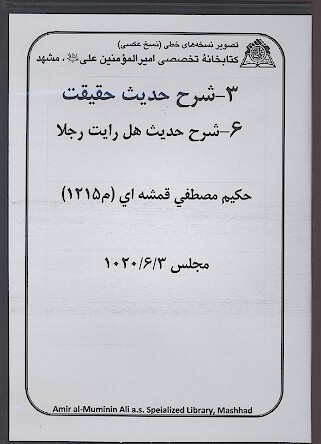 تصویر نسخه‌های خطی (نسخ عکسی)
کتابخانهٔ تخصصی امیرالمؤمنین علی ﷷ، مشهد
۳-شرح حدیث حقیقت
۶-شرح حدیث هل رایت رجلا
حکیم مصطفي قمشه اي (م۱۲۱۵)
مجلس ۱۰۲۰/۶/۳
Amir al-Muminin Ali a.s. Speialized Library, Mashhad